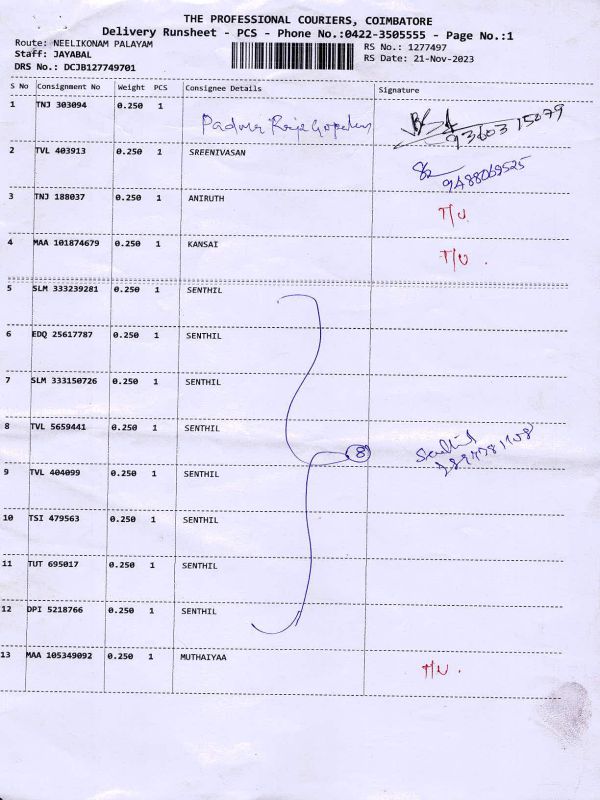 THE PROFESSIONAL COURIERS, COIMBATORE
Delivery Runsheet - PCS - Phone No.:0422-3505555 - Page No.:1
Route: NEELIKONAM PALAYAM RS No.: 1277497
Staff: JAYABAL RS Date: 21-Nov-2023
DRS No.: DCJB127749701
S No Consignment No Weight PCS Consignee Details Signature
1 TNJ 303094 0.250 1
Padma Raja Gopalan 93603 15079
2 TVL 403913 0.250 1 SREENIVASAN
9488069525
3 TNJ 188037 0.250 1 ANIRUTH T/U
4 MAA 101874679 0.250 1 KANSAI T/U .
5 SLM 333239281 0.250 1 SENTHIL
6 EDQ 25617787 0.250 1 SENTHIL
7 SLM 333150726 0.250 1 SENTHIL
8 TVL 5659441 0.250 1 SENTHIL
8 Senthil
9 TVL 404099 0.250 1 SENTHIL
10 TSI 479563 0.250 1 SENTHIL
11 TUT 695017 0.250 1 SENTHIL
12 DPI 5218766 0.250 1 SENTHIL
13 MAA 105349092 0.250 1 MUTHAIYAA T/U .